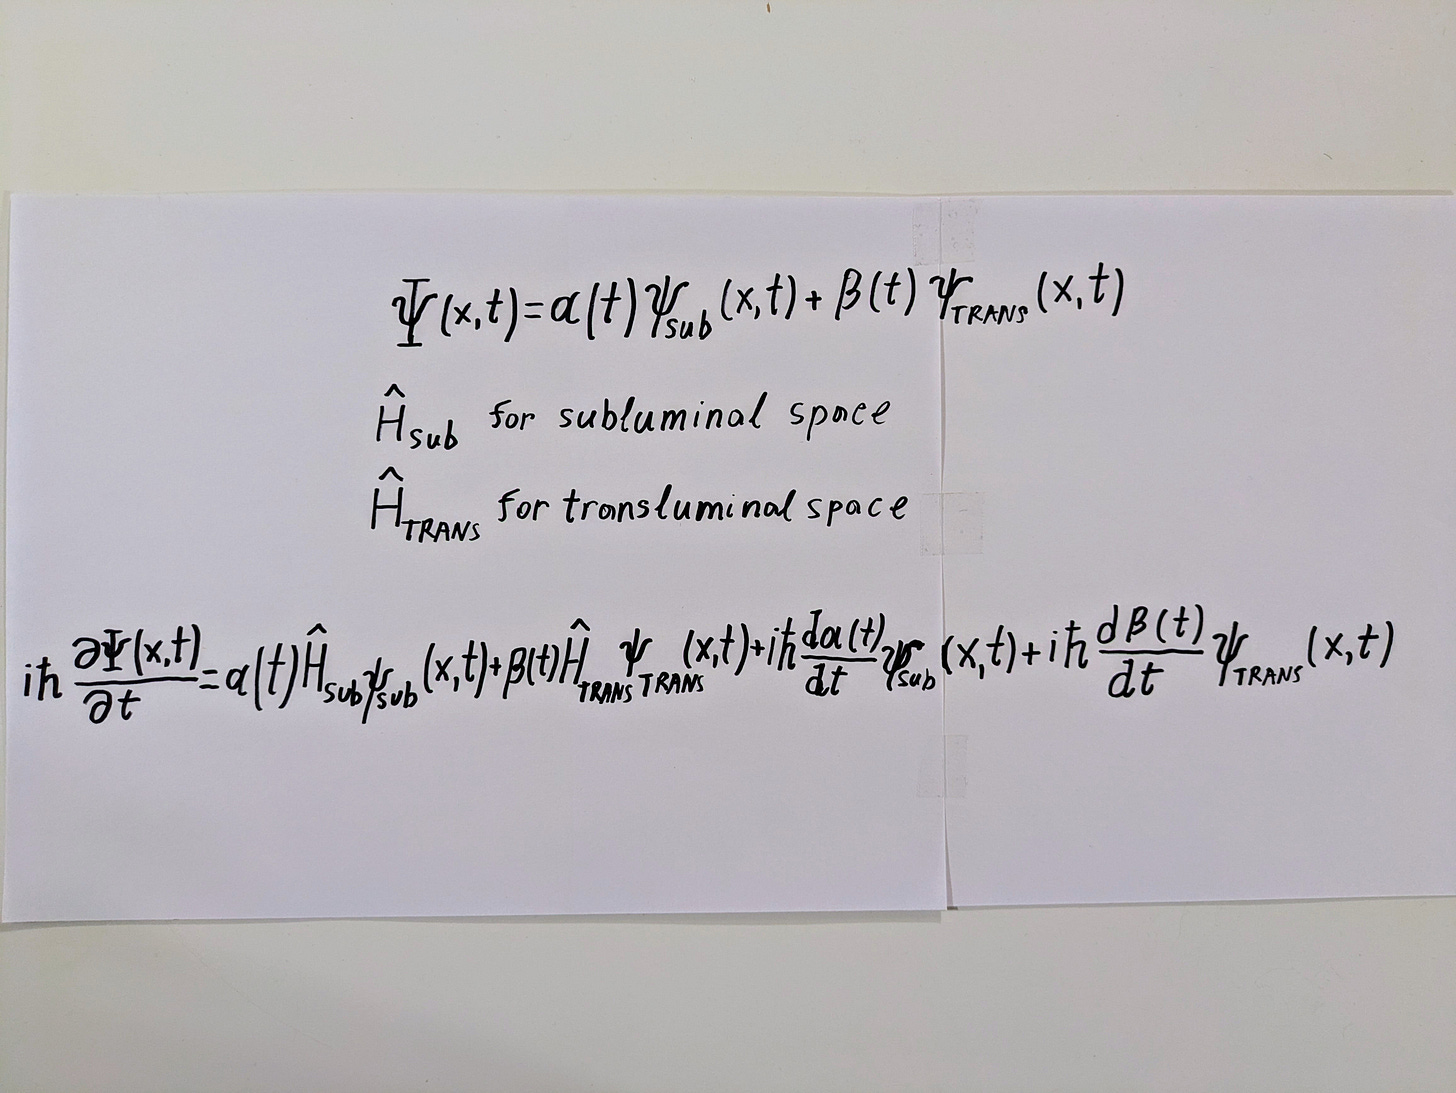 Ψ(x,t)=α(t)ψ_sub(x,t)+β(t)ψ_TRANS(x,t)
Ĥ_sub for subluminal space
Ĥ_TRANS for transluminal space
iħ ∂Ψ(x,t)/∂t=α(t)Ĥ_subψ_sub(x,t)+β(t)Ĥ_TRANSψ_TRANS(x,t)+iħ dα(t)/dt ψ_sub(x,t)+iħ dβ(t)/dt ψ_TRANS(x,t)